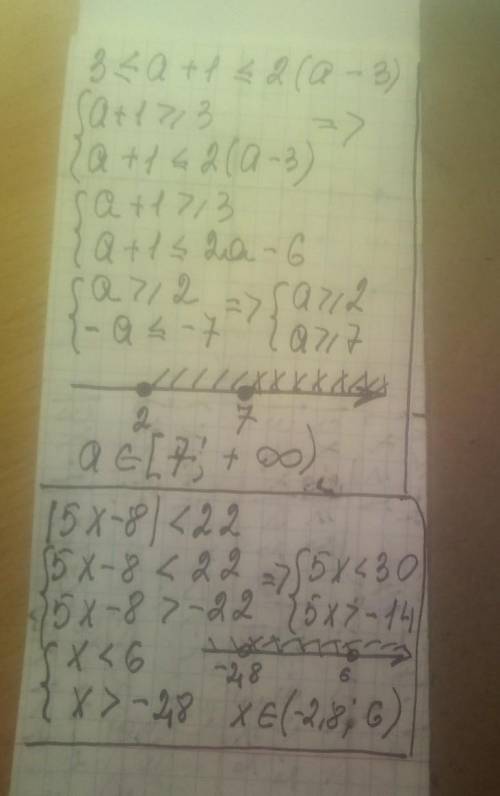 3 ≤ a + 1 ≤ 2(a - 3)
{a+1 ⩾ 3 =>
{a + 1 ≤ 2(a-3)
{a + 1 ⩾ 3
{a+1 ≤ 2a - 6
{a ⩾ 2 => {a ⩾ 2
{-a ≤ -7 {a ⩾ 7
2 7
a ∈ [7; + ∞)
|5x-8| < 22
{5x-8 < 22 => {5x < 30
{5x-8 > -22 {5x > -14
{x < 6 -2,8 6
{x > -2,8 x ∈ (-2,8; 6)